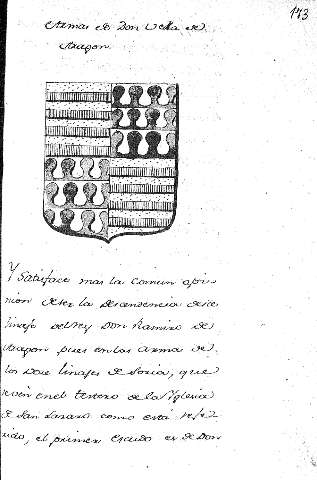 173
Armas de Don Vela de
Aragon
Y Satisface mas la comun opi-
nion de ser la descendencia de este
linaje del Rey Don Ramiro de
Aragon, pues en las armas de
los Doze linajes de Soria, que
se ven en el testero de la Yglesia
de San Lazaro como está refe
rido, el primer Escudo es de Don